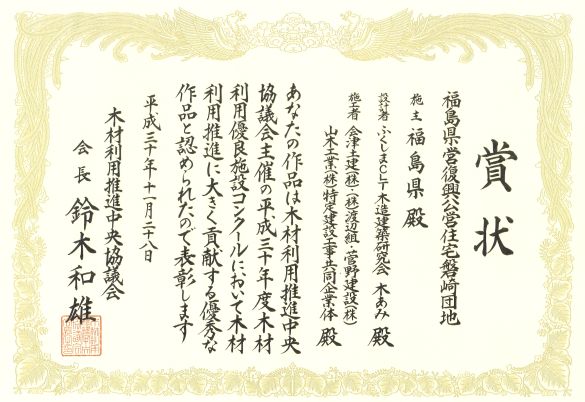 賞状
福島県営復興公営住宅磐崎団地
施主 福島県 殿
設計者 ふくしまCLT木造建築研究会 木あみ 殿
施工者 会津土建(株)・(株)渡辺組・菅野建設(株)
山木工業(株)特定建設工事共同企業体 殿
あなたの作品は木材利用推進中央
協議会主催の平成三十年度木材
利用優良施設コンクールにおいて木材
利用推進に大きく貢献する優秀な
作品と認められたので表彰します
平成三十年十一月二十八日
木材利用推進中央協議会
会長 鈴木和雄